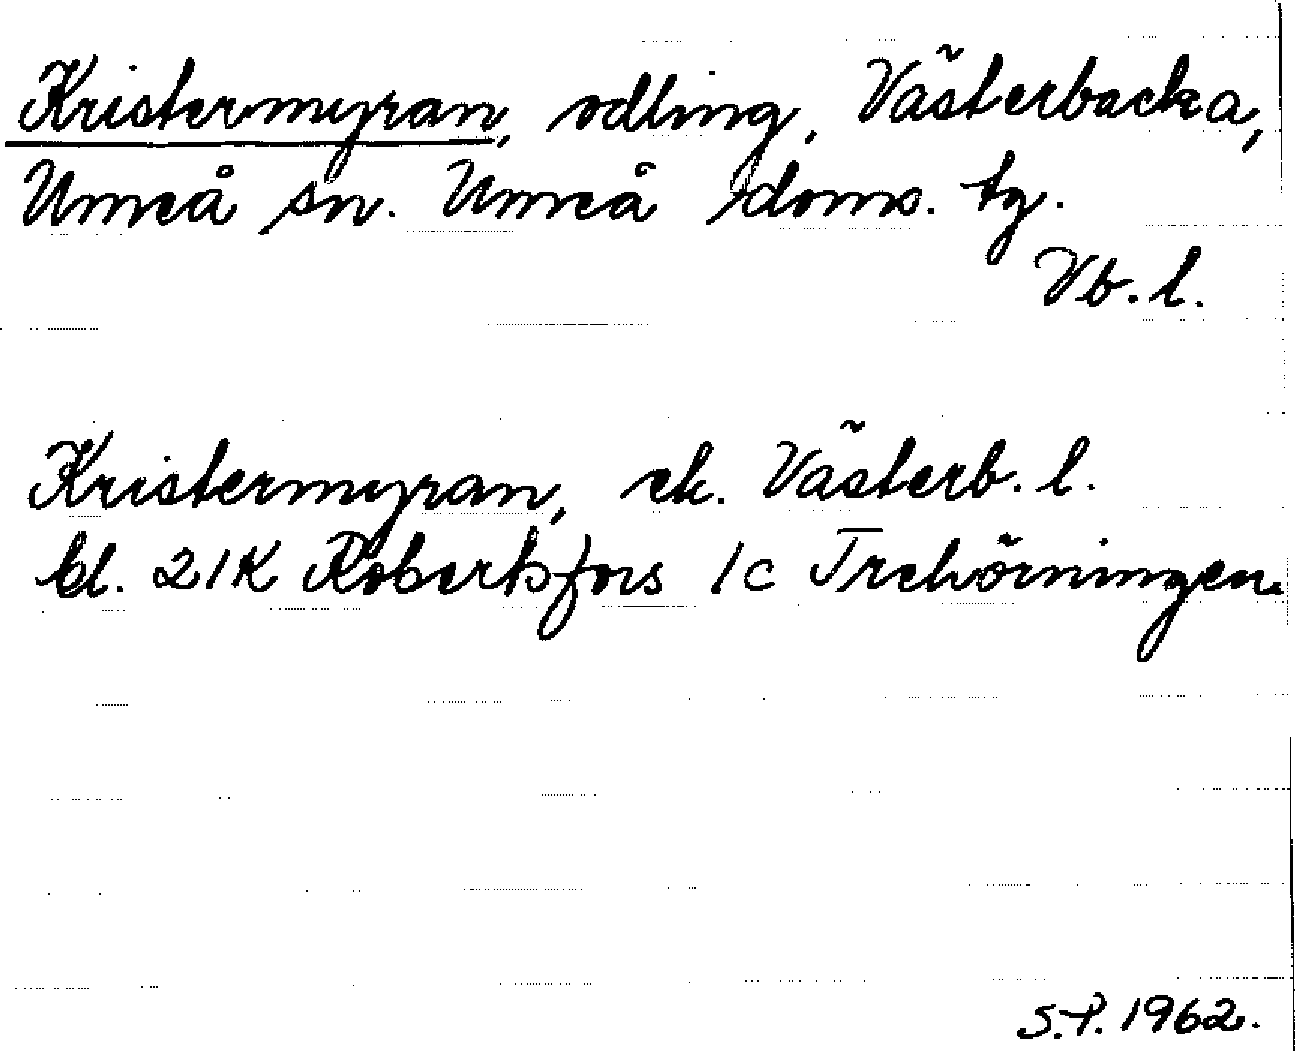 Kristermyran, odling, Västerbacka,
Umeå sn. Umeå doms. tg.
Vb. l.
Kristermyran, ek. Västerb. l.
bl. 21K Robertsfors 1c Trehörningen.
S.P. 1962.